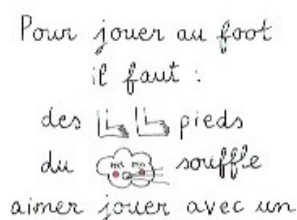 Pour jouer au foot
il faut :
des pieds
du souffle
aimer jouer avec un